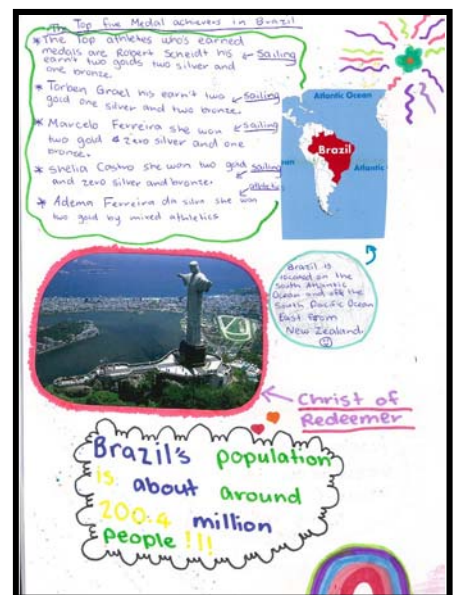 The Top five Medal achievers in Brazil
* The Top athletes who's earned
medals are Robert Scheidt his
earn't two golds two silver and
one bronze.
Sailing
* Torben Grael his earn't two
gold one silver and two bronze.
Sailing
* Marcelo Ferreira she won
two gold & zero silver and one
bronze.
Sailing
* Shelia Castro she won two gold
and zero silver and bronze.
Sailing
* Adema Ferreira da silva she won
two gold by mixed athletics
athletics
Atlantic Ocean
Brazil
Atlantic
Brazil is
located on the
South Atlantic
Ocean and off the
South Pacific Ocean
East from
New Zealand.
Christ of
Redeemer
Brazil's population
is about around
200.4 million
people !!!